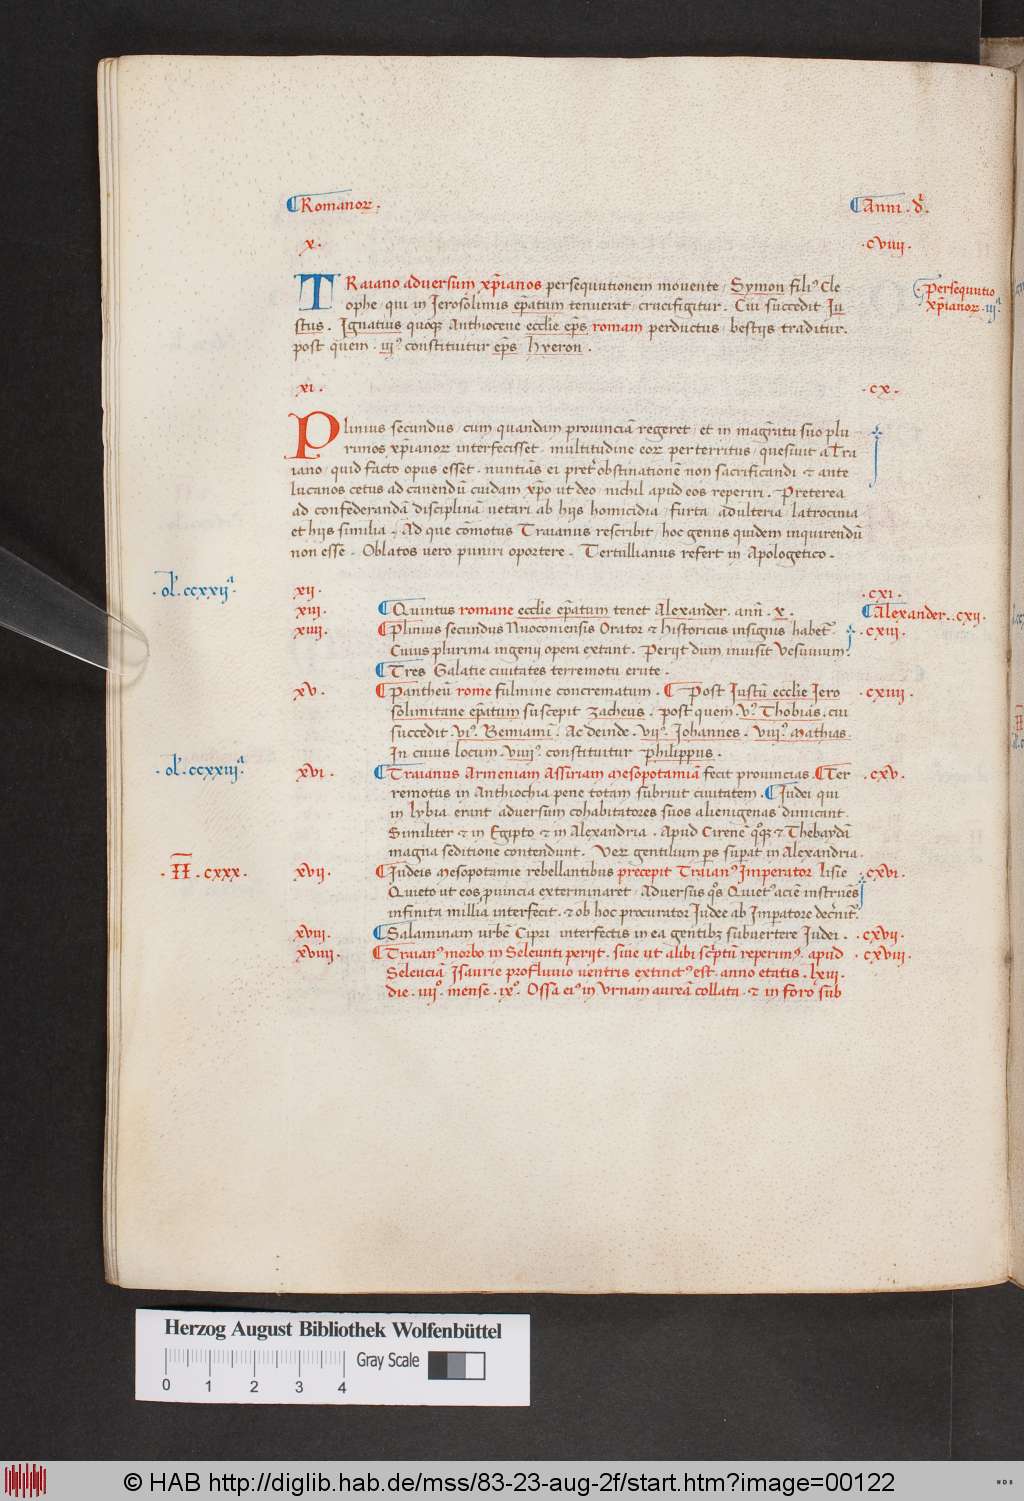 Romanoꝝ.
Anni . dī.
.x.
.cviiii.
TRaiano adversum xp̄ianos persequutionem movente / Symon filiꝰ Cle
ophe / qui in Jerosolimis ep̄atum tenuerat / crucifigitur. Cui succedit Ju
stus. Ignatius quoqꝫ Anthiocene eccl̄ie ep̄s romam perductus / bestijs traditur.
post quem .iijꝰ. constituitur ep̄s hyeron.
Persequutio
xp̄ianoꝝ .iijª.
xi.
.cx.
Plinius secundus / cum quandam prouinciā regeret / et in magr̄atu suo plu
rimos xp̄ianoꝝ interfecisset / multitudine eoꝝ perterritus / quesiuit a Tra
iano / quid facto opus esset / nuntiās ei pret̄ obstinationē non sacrificandi & ante
lucanos cetus ad canendū cuidam xp̄o ut deo / nichil apud eos reperiri. Preterea
ad confederandā disciplinā uetari ab hijs homicidia / furta / adulteria / latrocinia
et hijs similia. Ad que cōmotus Traianus rescribit / hoc genus quidem inquirendū
non esse. Oblatos uero puniri oportere. Tertullianus refert in Apologetico.
.ol̄. ccxxijª.
xii.
.cxi.
xiii.
Quintus romane eccl̄ie ep̄atum tenet Alexander. annī .x.
Alexander..cxii.
xiiii.
Plinius secundus Nuocomensis Orator & historicus insignis habet̄.
.cxiii.
Cuius plurima ingenij opera extant. Perijt dum inuisit Vesuuium.
Tres Galatie ciuitates terremotu erute.
xv.
Pantheū rome fulmine concrematum. Post Justū eccl̄ie Jero
.cxiiii.
solimitane ep̄atum suscepit Zacheus. post quem .vꝰ. Thobias. cui
succedit .viꝰ. Beniamī. Ac deinde .viiꝰ. Johannes. viiiꝰ. Mathias.
In cuius locum .viiiiꝰ. constituitur philippus.
.ol̄. ccxxiiiª.
xvi.
Traianus Armeniam Assiriam Mesopotamiā fecit prouincias. Ter
.cxv.
remotus in Anthiochia pene totam subruit ciuitatem. Judei qui
in lybia erant / adversum cohabitatores suos alienigenas dimicant.
Similiter & in Egipto & in Alexandria. Apud Cirenē qͦqꝫ & Thebaydā
magna seditione contendunt. Veꝝ gentilium ps superat in Alexandria.
.II. cxxx.
xvii.
Judeis Mesopotamie rebellantibus precepit Traianꝰ Imperator lisie
.cxvi.
Quieto ut eos prouincia exterminaret / Adversus qͦs Quietꝰ aciē instruēs
infinita millia interfecit. & ob hoc procurator Judee ab Imperatore decrnit̄.
xviii.
Salaminam urbē Cipri / interfectis in ea gentibꝫ subuertere Judei.
.cxvii.
xviiii.
Traianꝰ morbo in Seleunti perijt. siue ut alibi scriptū reperimꝰ. apud
.cxviii.
Seleuciā Isaurie profluuio uentris extinctꝰ est. anno etatis. lxiii.
die .iiijº. mense .ixº. Ossa eiꝰ in urnam aureā collata. & in foro sub
Herzog August Bibliothek Wolfenbüttel
Gray Scale
0 1 2 3 4
© HAB http://diglib.hab.de/mss/83-23-aug-2f/start.htm?image=00122